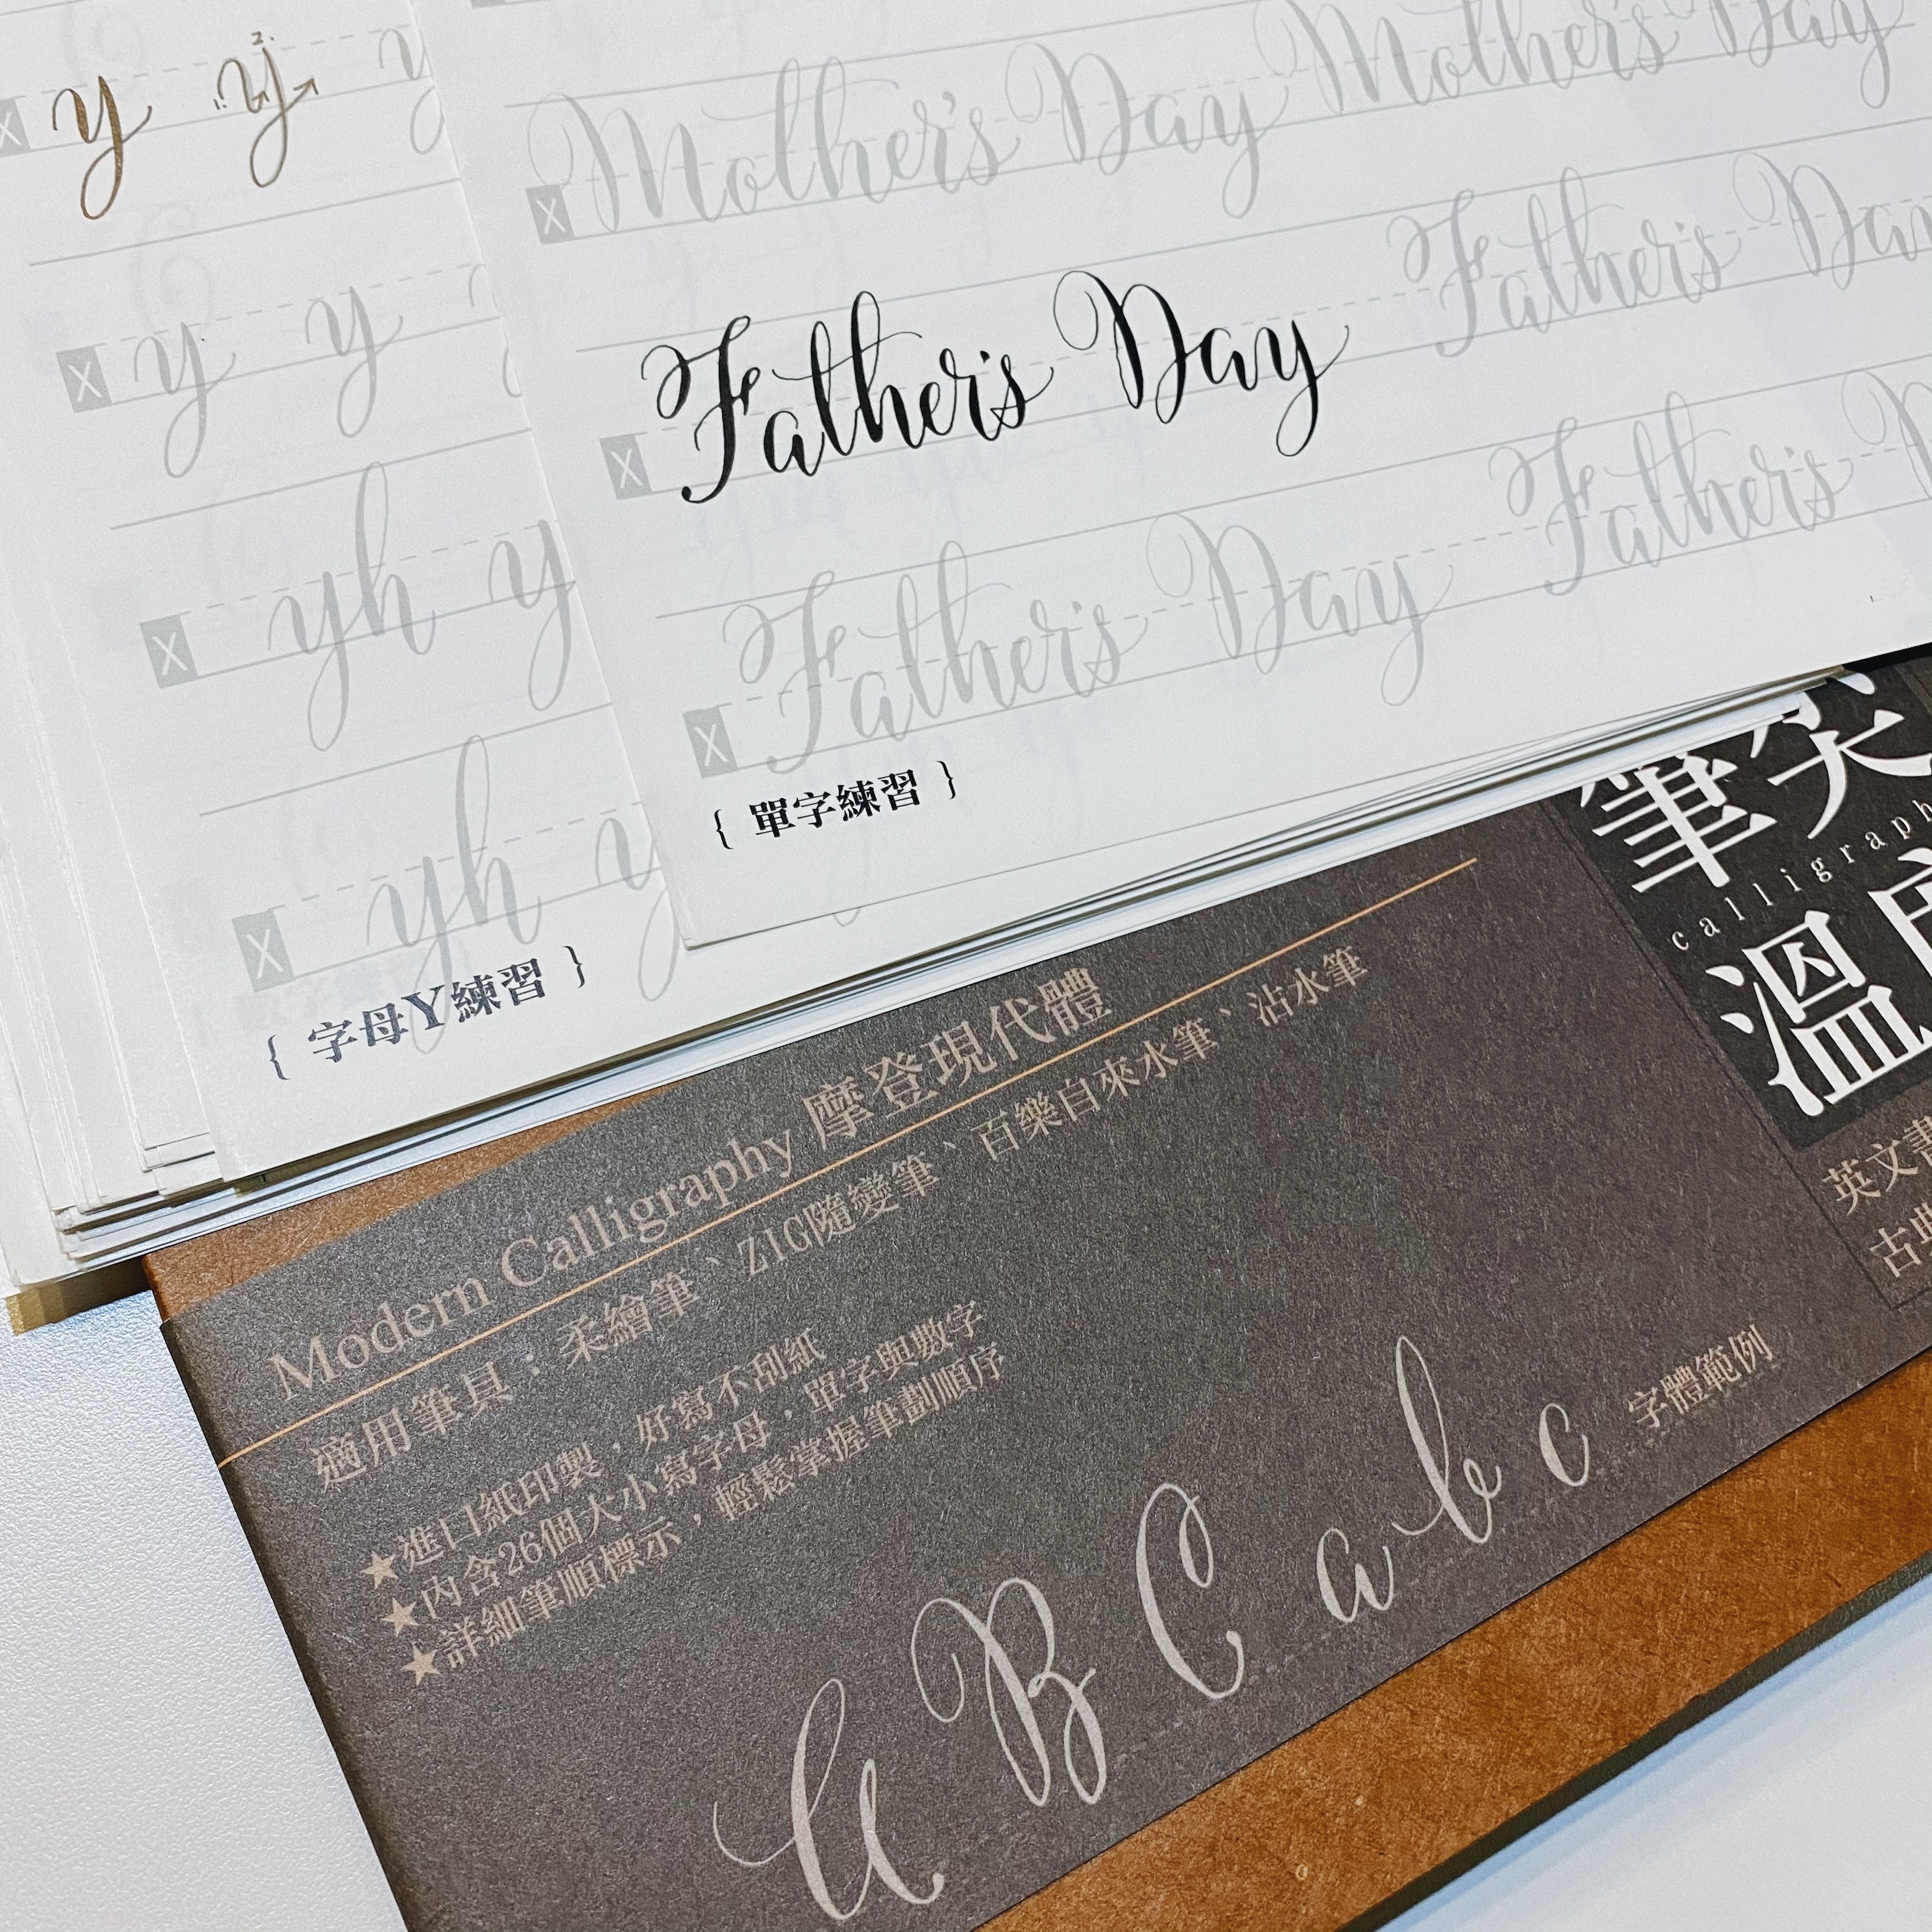 y y y
X
y y
X
yh y
X
yh y
X
{ 字母Y練習 }
Mother's Day Mother's Day
X
Father's Day Father's Day
X
Father's Day Father's
X
{ 單字練習 }
Modern Calligraphy 摩登現代體
適用筆具：柔繪筆、ZIG隨變筆、百樂自來水筆、沾水筆
★進口紙印製，好寫不刮紙
★內含26個大小寫字母，單字與數字
★詳細筆順標示，輕鬆掌握筆劃順序
A B C a b c 字體範例
筆尖
calligraph
溫
英文書
古典